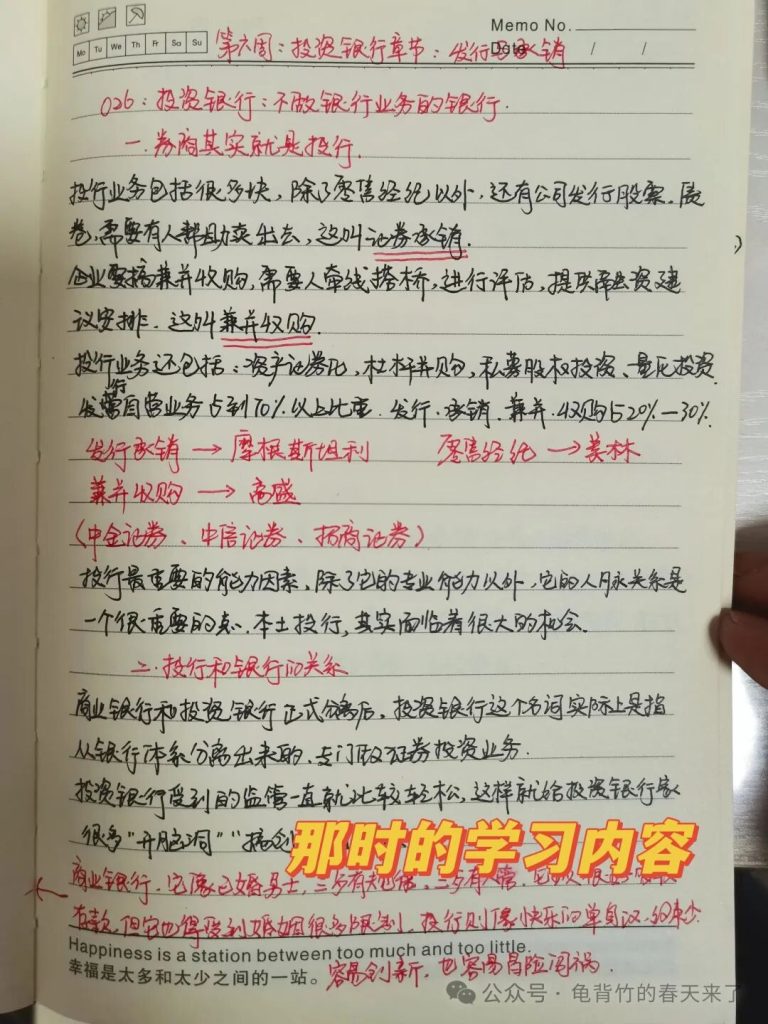 Memo No.
Mo Tu We Th Fr Sa Su
Date / /
第六周：投资银行章节：发行与承销
026：投资银行：不做银行业务的银行.
一.券商其实就是投行.
投行业务包括很多块，除了零售经纪以外，还有公司发行股票.债
卷，需要有人帮助卖出去，这叫证券承销.
企业要搞兼并收购，需要人牵线搭桥，进行评估，提供融资建
议安排.这叫兼并收购.
投行业务还包括：资产证券化，杠杆并购，私募股权投资、量化投资.
自营业务占到70%以上比重.发行.承销.兼并.收购占20%—30%.
发行承销 → 摩根斯坦利 零售经纪 → 美林
兼并收购 → 高盛
（中金证券、中信证券、招商证券）
投行最重要的能力因素，除了它的专业能力以外，它的人脉关系是
一个很重要的点.本土投行，其实面临着很大的机会.
二.投行和银行的关系
商业银行和投资银行正式分离后，投资银行这个名词实际上是指
从银行体系分离出来的、专门做证券投资业务.
投资银行受到的监管一直就比较轻松，这样就给投资银行家
很多"开脑洞""搞创
那时的学习内容
商业银行，它像已婚男士，
存款，但它也得受到婚姻很多限制，投行则像快乐的单身汉，约束少
Happiness is a station between too much and too little.
幸福是太多和太少之间的一站。
容易创新，也容易冒险闯祸.
公众号·龟背竹的春天来了